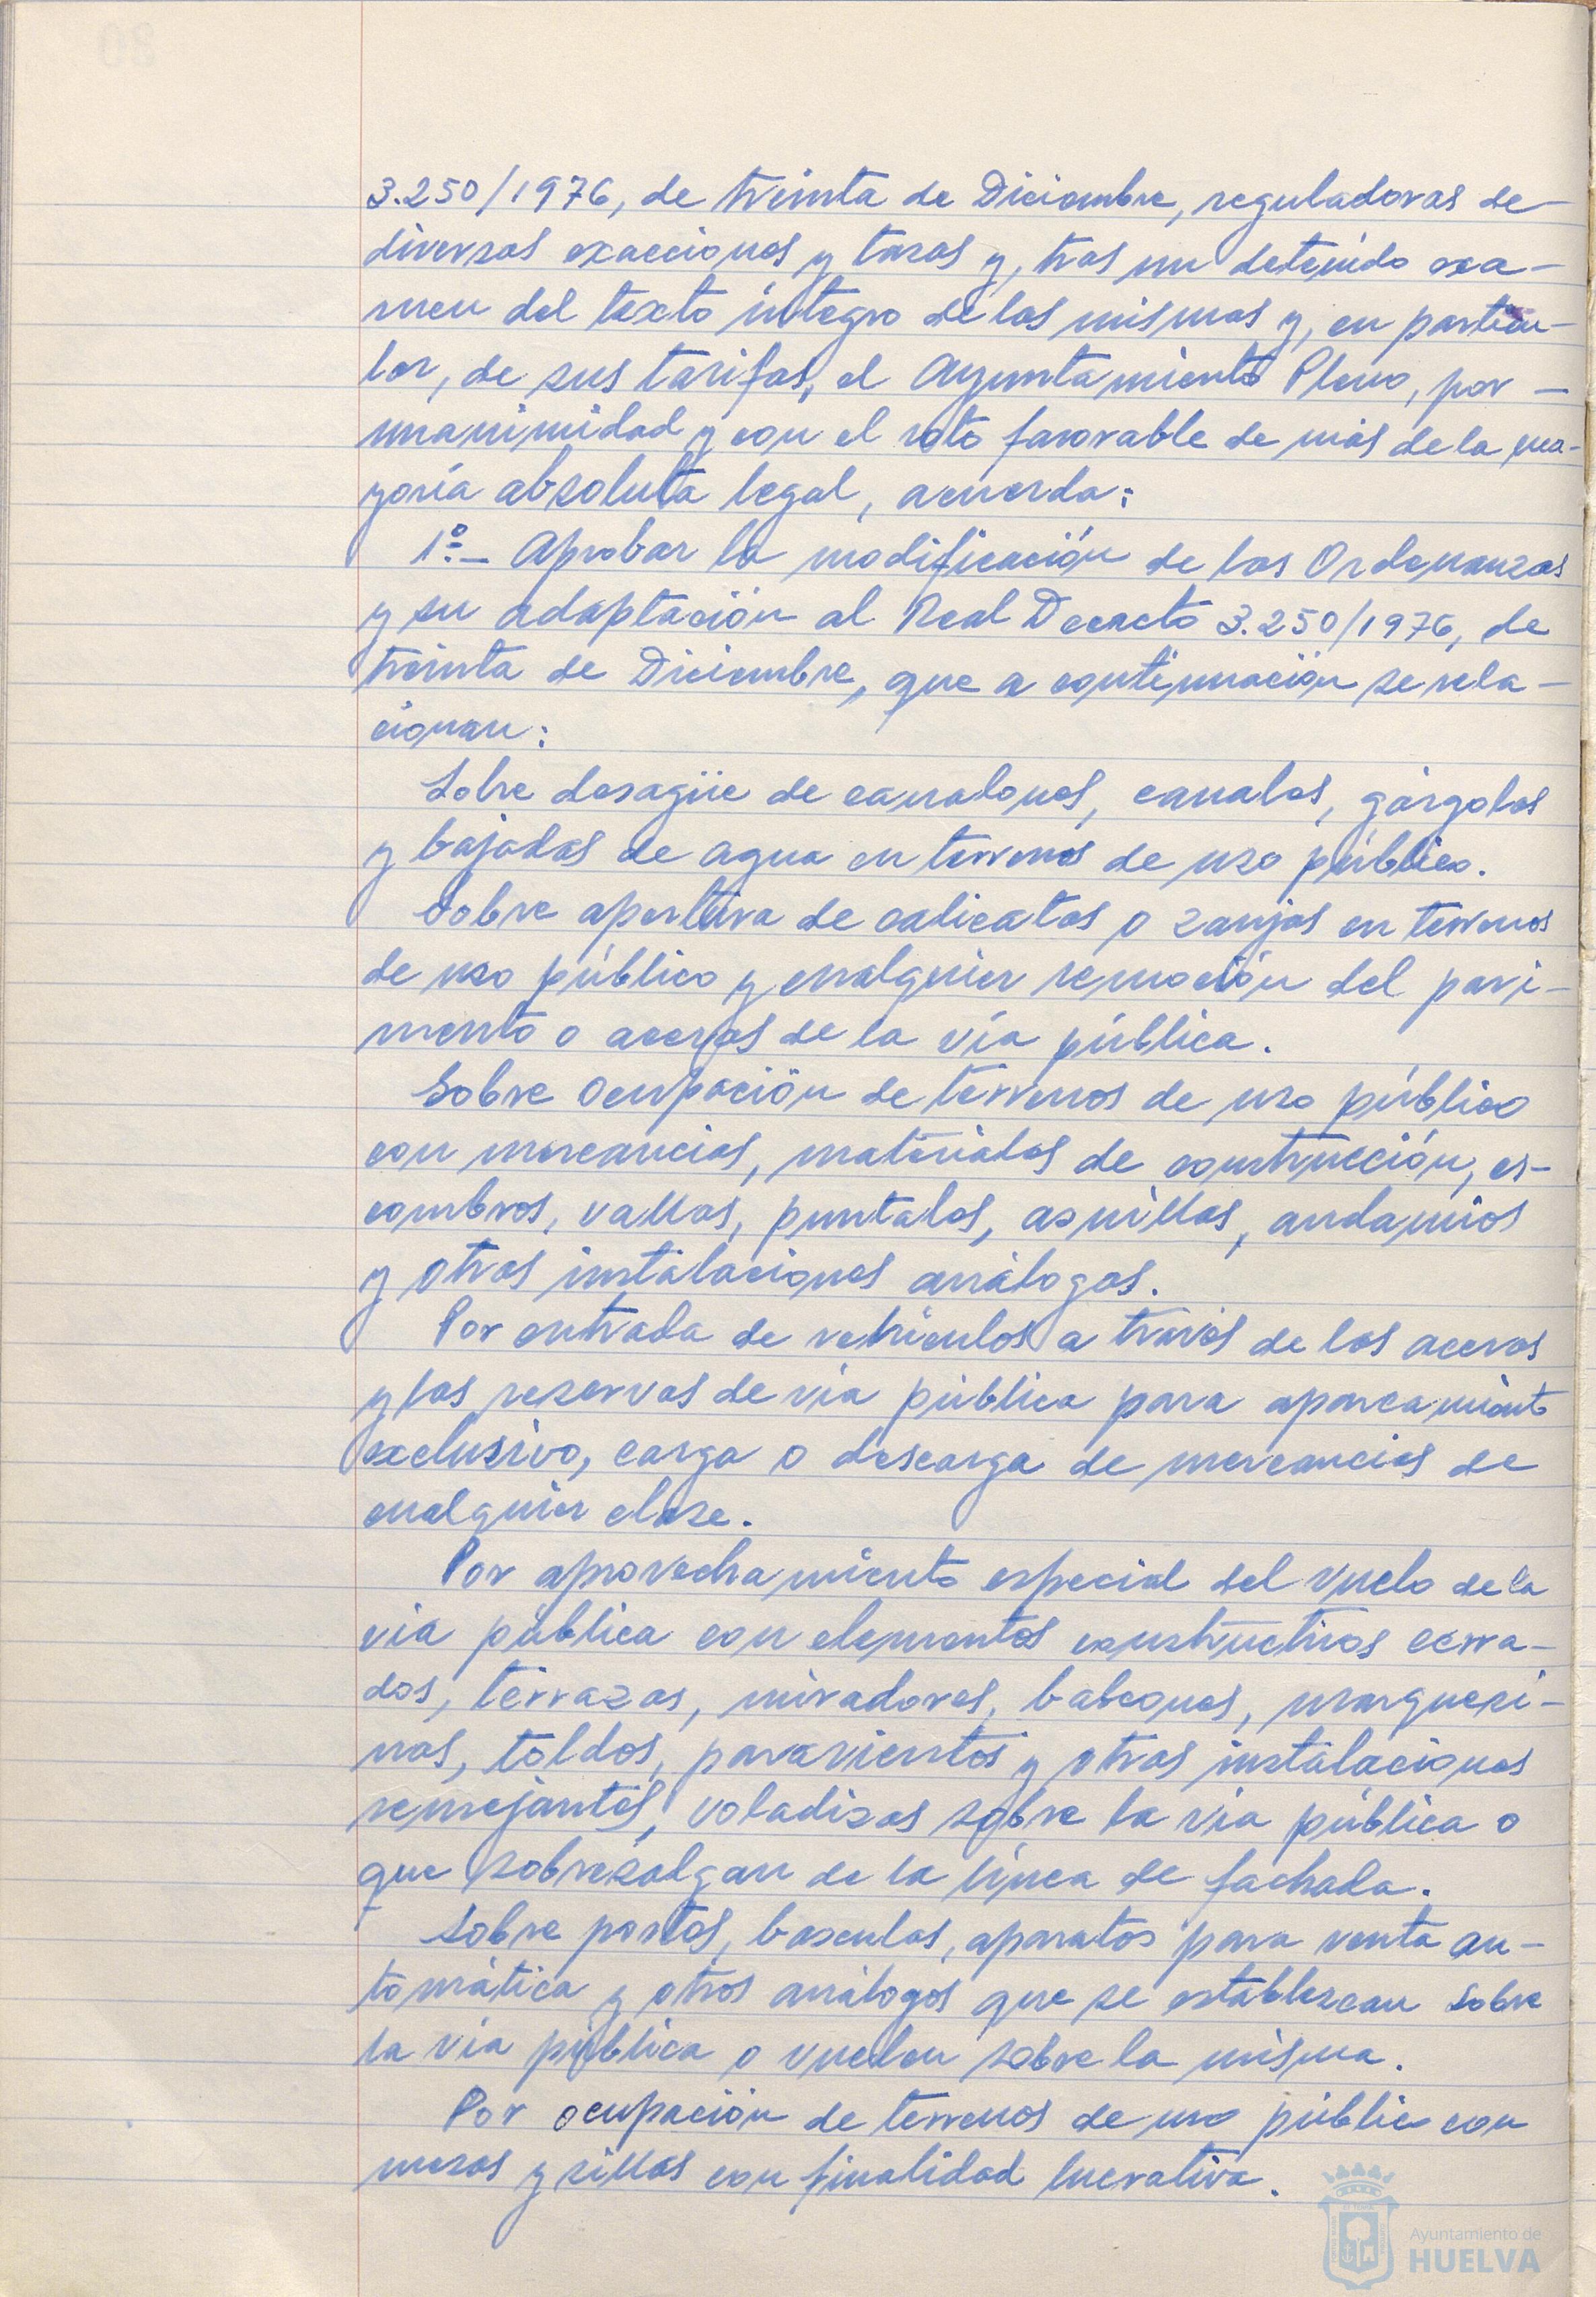 3.250/1976, de treinta de Diciembre, reguladoras de
diversas exacciones y tasas y, tras un detenido exa-
men del texto íntegro de las mismas y, en particu-
lar, de sus tarifas, el Ayuntamiento Pleno, por
unanimidad y con el voto favorable de más de la ma-
yoría absoluta legal, acuerda:
1º.- Aprobar la modificación de las Ordenanzas
y su adaptación al Real Decreto 3.250/1976, de
treinta de Diciembre, que a continuación se rela-
cionan:
Sobre desagüe de canalones, canales, gárgolas
y bajadas de agua en terrenos de uso público.
Sobre apertura de calicatas o zanjas en terrenos
de uso público y cualquier remoción del pavi-
mento o aceras de la vía pública.
Sobre ocupación de terrenos de uso público
con mercancias, materiales de construcción, es-
combros, vallas, puntales, asnillas, andamios
y otras instalaciones análogas.
Por entrada de vehículos a través de las aceras
y las reservas de vía pública para aparcamiento
exclusivo, carga o descarga de mercancias de
cualquier clase.
Por aprovechamiento especial del vuelo de la
vía pública con elementos constructivos cerra-
dos, terrazas, miradores, balcones, marquesi-
nas, toldos, paravientos y otras instalaciones
semejantes, voladizas sobre la vía pública o
que sobresalgan de la línea de fachada.
Sobre postes, basculas, aparatos para venta au-
tomática y otros análogos que se establezcan sobre
la vía pública o vuelen sobre la misma.
Por ocupación de terrenos de uso público con
mesas y sillas con finalidad lucrativa.
Ayuntamiento de
HUELVA